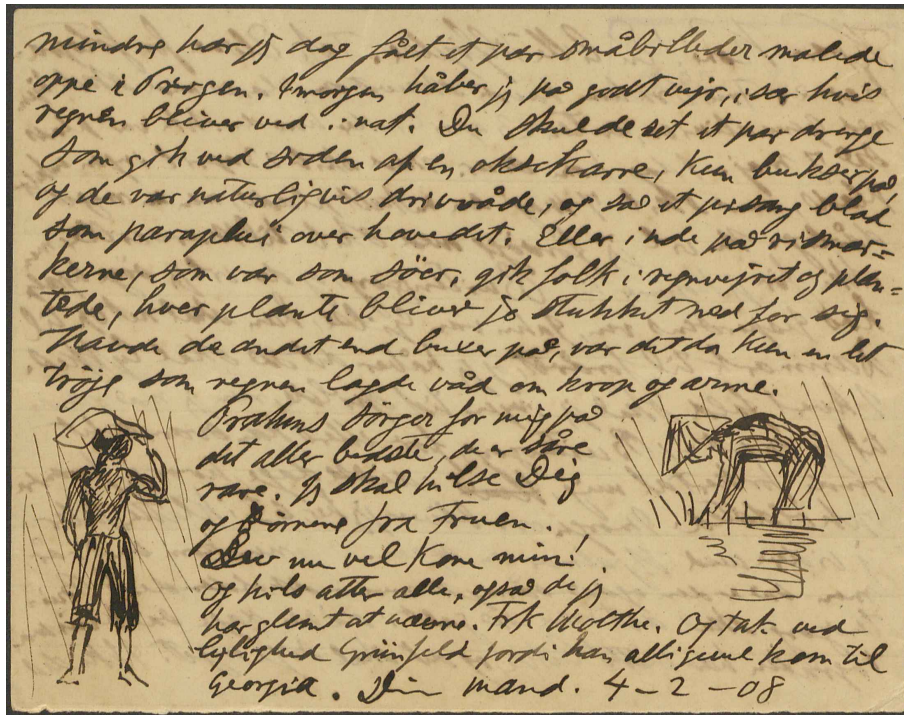 mindre har jeg dag fået et par småbilleder malede
oppe i Byen. Imorgen håber jeg på godt vejr, især hvis
regnen bliver ved i nat. Du skulde set et par drenge
som gik ved siden af en oksekarre, kun buxer på,
og de var naturligvis drivvåde, og så et pisang blad
som paraplui over hovedet. Eller inde på rismar=
kerne, som var som söer, gik folk i regnvejret og plan=
tede, hver plante bliver jo stukket ned for sig.
Havde de andet end buxer på, var det da kun en let
tröje som regnen lagde våd om krop og arme.
sörger for mig på
det aller bedste, de er såre
rare. Jeg skal hilse Dig
og Börnene fra Fruen.
Lev nu vel Kone min!
og hils atter alle, også de jeg
har glemt at nævne. Frk Molthe. Og tak ved
lejlighed Grünfeld fordi han alligevel kom til
Georgia. Din mand. 4-2-08